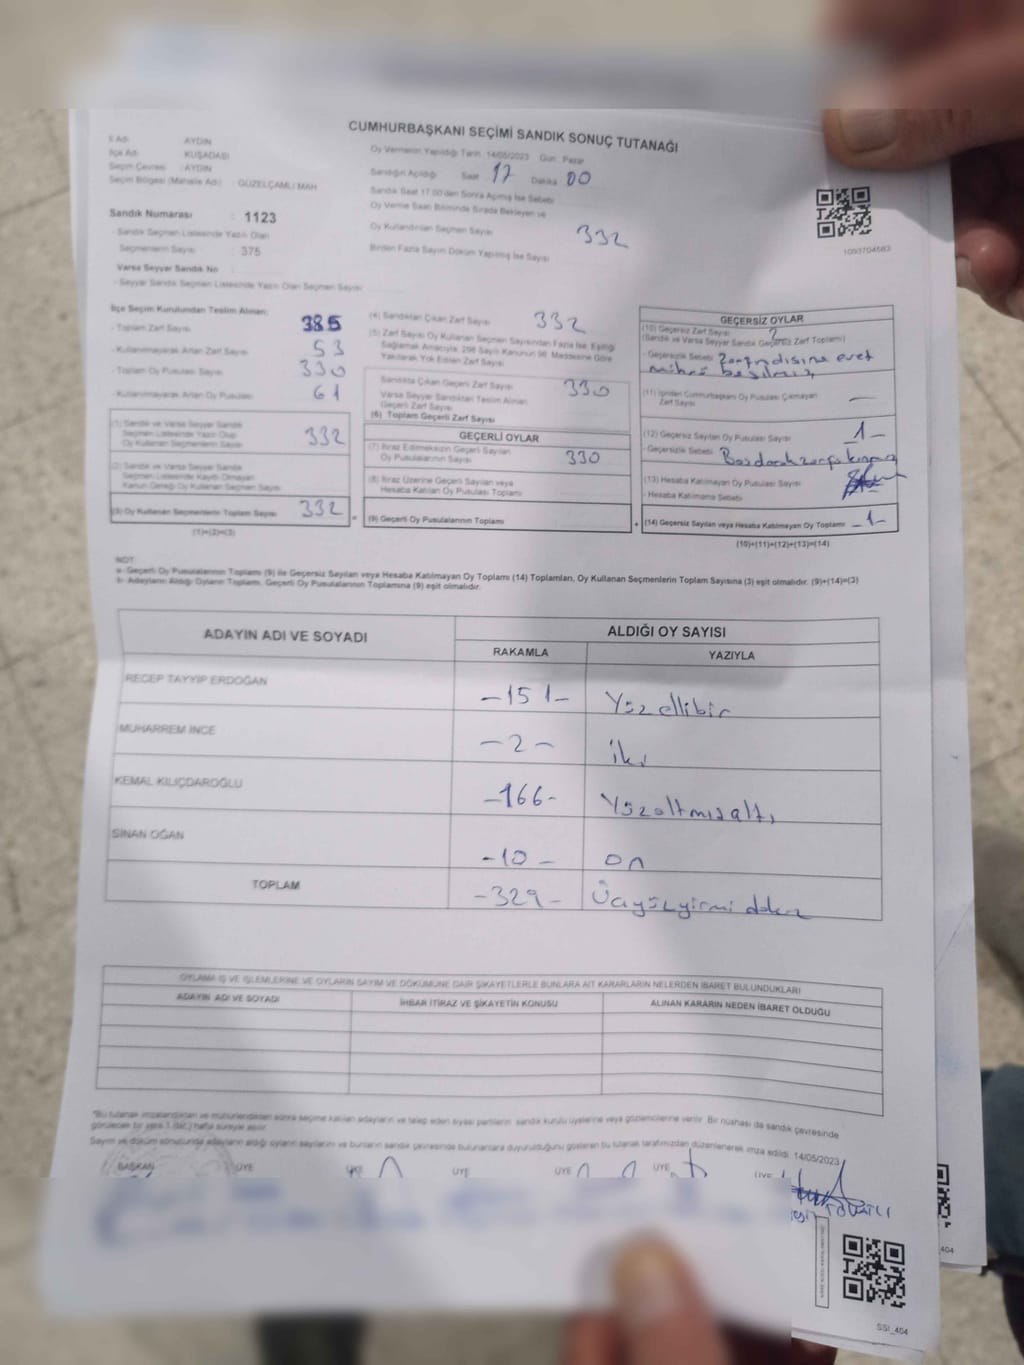 CUMHURBAŞKANI SEÇİMİ SANDIK SONUÇ TUTANAĞI
İl Adı : AYDIN
İlçe Adı : KUŞADASI
Seçim Çevresi : AYDIN
Seçim Bölgesi (Mahalle Adı) : GÜZELÇAMLI MAH
Sandık Numarası : 1123
- Sandık Seçmen Listesinde Yazılı Olan
Seçmenlerin Sayısı : 375
Varsa Seyyar Sandık No
- Seyyar Sandık Seçmen Listesinde Yazılı Olan Seçmen Sayısı
Oy Vermenin Yapıldığı Tarih 14/05/2023 Gün Pazar
Sandığın Açıldığı Saat 17 Dakika 00
Sandık Saat 17.00'den Sonra Açılmış İse Sebebi
Oy Verme Saati Bitiminde Sırada Bekleyen ve
Oy Kullandırılan Seçmen Sayısı 332
Birden Fazla Sayım Döküm Yapılmış İse Sayısı
1093704563
İlçe Seçim Kurulundan Teslim Alınan:
- Toplam Zarf Sayısı 385
- Kullanılmayarak Artan Zarf Sayısı 53
- Toplam Oy Pusulası Sayısı 330
- Kullanılmayarak Artan Oy Pusulası 61
(1) Sandık ve Varsa Seyyar Sandık
Seçmen Listesinde Yazılı Olup
Oy Kullanan Seçmenlerin Sayısı 332
(2) Sandık ve Varsa Seyyar Sandık
Seçmen Listesinde Kayıtlı Olmayan
Kanun Gereği Oy Kullanan Seçmen Sayısı
(3) Oy Kullanan Seçmenlerin Toplam Sayısı 332
(1)+(2)=(3)
(4) Sandıktan Çıkan Zarf Sayısı 332
(5) Zarf Sayısı Oy Kullanan Seçmen Sayısından Fazla İse, Eşitliği
Sağlamak Amacıyla, 298 Sayılı Kanunun 98. Maddesine Göre
Yakılarak Yok Edilen Zarf Sayısı
Sandıkta Çıkan Geçerli Zarf Sayısı 330
Varsa Seyyar Sandıktan Teslim Alınan
Geçerli Zarf Sayısı
(6) Toplam Geçerli Zarf Sayısı
GEÇERLİ OYLAR
(7) İtiraz Edilmeksizin Geçerli Sayılan
Oy Pusulalarının Sayısı 330
(8) İtiraz Üzerine Geçerli Sayılan veya
Hesaba Katılan Oy Pusulası Toplamı
(9) Geçerli Oy Pusulalarının Toplamı
GEÇERSİZ OYLAR
(10) Geçersiz Zarf Sayısı 2
(Sandık ve Varsa Seyyar Sandık Geçersiz Zarf Toplamı)
- Geçersizlik Sebebi evet
(11) İçinden Cumhurbaşkanı Oy Pusulası Çıkmayan
Zarf Sayısı —
(12) Geçersiz Sayılan Oy Pusulası Sayısı -1-
- Geçersizlik Sebebi
(13) Hesaba Katılmayan Oy Pusulası Sayısı
- Hesaba Katılmama Sebebi
(14) Geçersiz Sayılan veya Hesaba Katılmayan Oy Toplamı -1-
(10)+(11)+(12)+(13)=(14)
NOT:
a- Geçerli Oy Pusulalarının Toplamı (9) ile Geçersiz Sayılan veya Hesaba Katılmayan Oy Toplamı (14) Toplamları, Oy Kullanan Seçmenlerin Toplam Sayısına (3) eşit olmalıdır. (9)+(14)=(3)
b- Adayların Aldığı Oyların Toplamı, Geçerli Oy Pusulalarının Toplamına (9) eşit olmalıdır.
ADAYIN ADI VE SOYADI
ALDIĞI OY SAYISI
RAKAMLA YAZIYLA
RECEP TAYYİP ERDOĞAN -151- Yüzellibir
MUHARREM İNCE -2- iki
KEMAL KILIÇDAROĞLU -166- Yüzaltmışaltı
SİNAN OĞAN -10- on
TOPLAM -329- Üçyüzyirmi dokuz
OYLAMA İŞ VE İŞLEMLERİNE VE OYLARIN SAYIM VE DÖKÜMÜNE DAİR ŞİKAYETLERLE BUNLARA AİT KARARLARIN NELERDEN İBARET BULUNDUKLARI
ADAYIN ADI VE SOYADI İHBAR İTİRAZ VE ŞİKAYETİN KONUSU ALINAN KARARIN NEDEN İBARET OLDUĞU
*Bu tutanak imzalandıktan ve mühürlendikten sonra seçime katılan adayların ve talep eden siyasi partilerin sandık kurulu üyelerine veya gözlemcilerine verilir. Bir nüshası da sandık çevresinde
görülecek bir yere 1 (bir) hafta süreyle asılır.
Sayım ve döküm sonucunda adayların aldığı oyların sayılarını ve bunların sandık çevresinde bulunanlara duyurulduğunu gösteren bu tutanak tarafımızdan düzenlenerek imza edildi. 14/05/2023
BAŞKAN ÜYE ÜYE ÜYE ÜYE ÜYE ÜYE
SSI_404
404